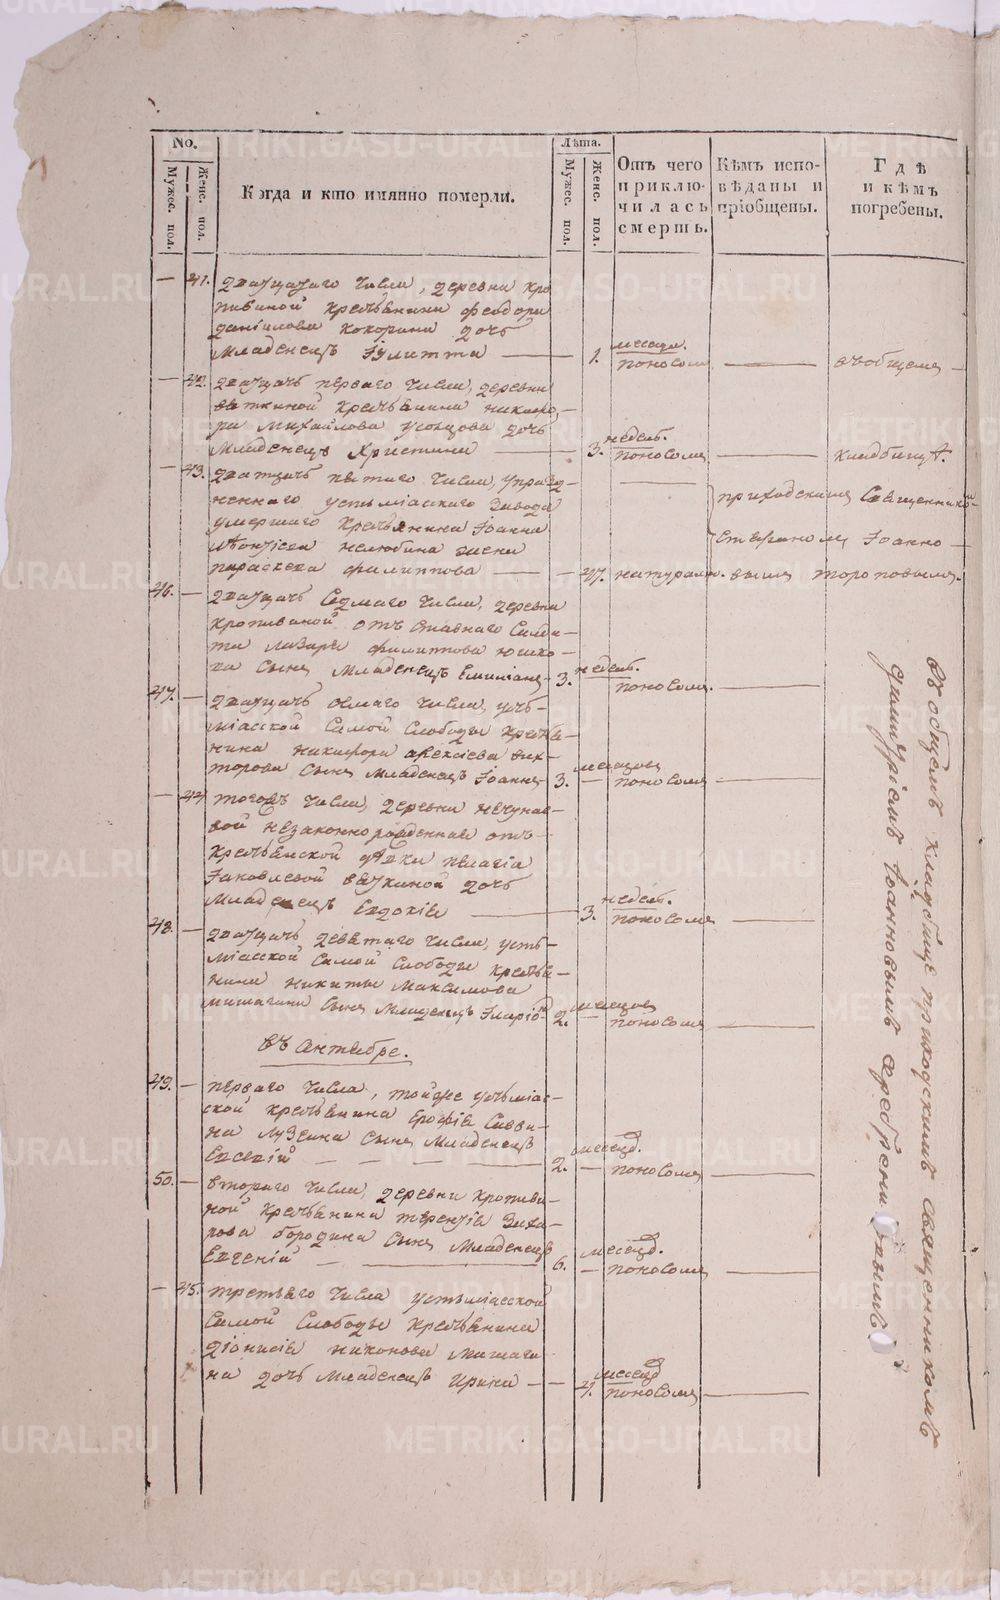 No.
Мужес. пол.
Женс. пол.
Когда и кто имянно померли.
Лѣта.
Мужес. пол.
Женс. пол.
Отъ чего
приклю-
чилась
смерть.
Кѣмъ испо-
вѣданы и
пріобщены.
Гдѣ
и кѣмъ
погребены.
— 41. Двацатаго числа, деревни Кро
пивиной крестьянина Феодора
Даніилова Кокорина дочь
младенецъ Іулитта — 1. месяца.
поносомъ — въ общемъ —
— 42. Двацать перваго числа, деревни
Вяткиной крестьянина Никифо-
ра Михайлова дочь
младенецъ Христина — 3. недель.
поносомъ — кладбищѣ.
— 43. Дватцать пятаго числа, упразд-
неннаго Устьміасскаго завода
умершаго крестьянина Іоанна
Леонтіева Нелюбина жена
Параскева Филиппова — 47. натурально.
приходскимъ Священнико-
Стефаномъ Іоанно-
вымъ Тороповымъ.
46. — Двацать седмаго числа, деревни
Кропивиной отъ ставнаго Солда-
та Лазаря Филиппова Юшко-
ва сынъ младенецъ Емиліанъ — 3. недель.
поносомъ. —
47. — Двацать осмаго числа, Усть-
міасской самой слободы крестья-
нина Никифора Алексіева Вик-
торова сынъ младенецъ Іоаннъ — 3. месяцовъ
— поносомъ —
— 44. тогожъ числа, деревни Нечунае-
вой незаконнорожденная отъ
крестьянской дѣвки Пелагіи
Іаковлевой Вяткиной дочь
младенецъ Евдокія — 3. недель.
поносомъ —
48. — Двацать девятаго числа, Усть-
міасской самой слободы крестья-
нина Никиты Максимова
Мишагина сынъ младенецъ Иларіонъ 2. месяцовъ
— поносомъ —
въ Октябре.
49. — перваго числа, тойже Устьміас-
ской крестьянина Ерофія Савви-
на Лузгина сынъ младенецъ
Евсевій — 2. месяц.
— поносомъ —
50. — втораго числа, деревни Кропиви-
ной крестьянина Терентія Заха-
рова Бородина сынъ младенецъ
Евгеній — 6. месяц.
— поносомъ —
— 45. третьяго числа Устьміасской
самой слободы крестьянина
Діонисія Никонова Мишаги
на дочь младенецъ Ирина — 4. месяц
поносомъ —
въ общемъ кладбище приходскимъ священникомъ
Димитріемъ Іоанновымъ
METRIKI.GASO-URAL.RU